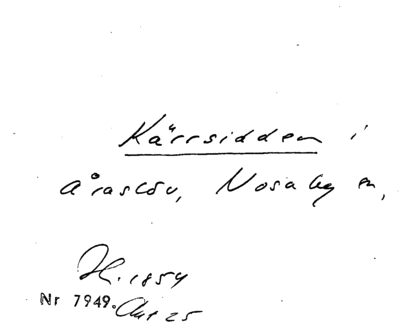 Kärrsidden i
Åraslöv, Nosaby sn,
H. 1854
Nr 7949. Akt 25